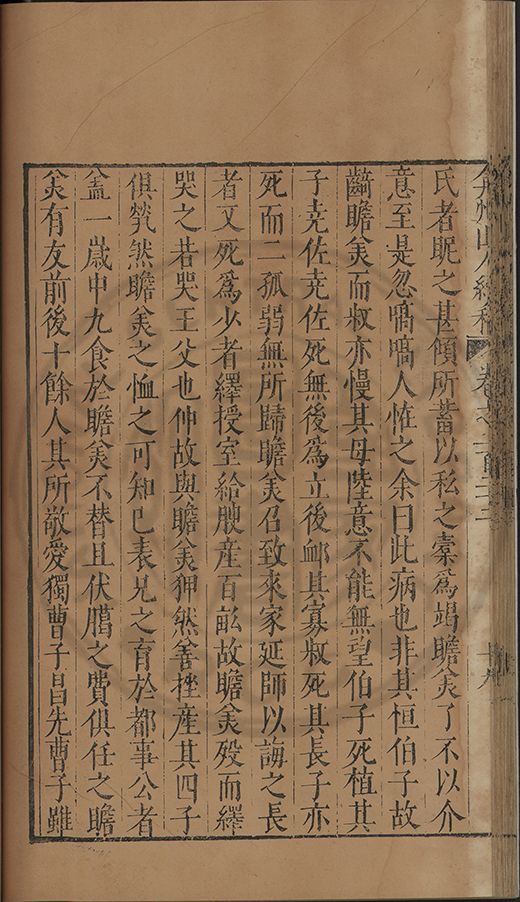 弇州山人續稿 卷之一百二十二 十九
氏者昵之甚傾所蓄以私之橐爲竭瞻美了不以介
意至是忽嗃嗃人恠之余曰此病也非其恒伯子故
齮瞻美而叔亦慢其母陸意不能無望伯子死植其
子堯佐堯佐死無後爲立後卹其寡叔死其長子亦
死而二孤弱無所歸瞻美召致來家延師以誨之長
者又死爲少者繹授室給腴產百畝故瞻美歿而繹
哭之若哭王父也仲故與瞻美狎然善挫產其四子
俱煢然瞻美之恤之可知已表兄之育於都事公者
盖一歲中九食於瞻美不替且伏臈之費俱任之瞻
美有友前後十餘人其所敬愛獨曹子昌先曹子雖